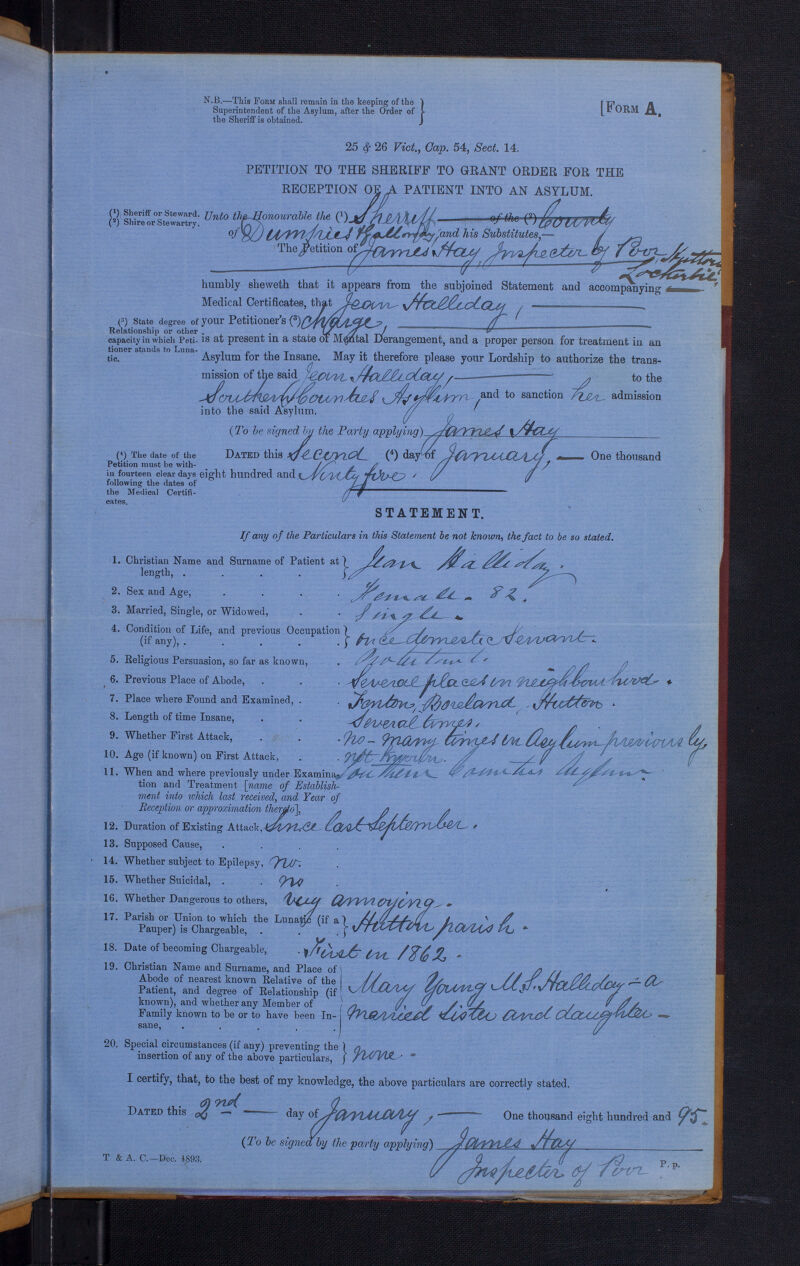 N.B.—This Form shall remain in the keeping of the
Superintendent of the Asylum, after the Order of
the Sheriff is obtained.
[Form A.
25 & 26 Vict., Cap. 54, Sect. 14.
PETITION TO THE SHERIFF TO GRANT ORDER FOR THE
RECEPTION OF A PATIENT INTO AN ASYLUM.
(¹) Sheriff or Steward.
(²) Shire or Stewartry.
Unto the Honourable the (¹) Sherriff of the (²) County
of Dumfries & Galloway and his Substitutes,—
The Petition of James Hay, Inspector of Poor Hutton
Lockerbie
humbly sheweth that it appears from the subjoined Statement and accompanying
Medical Certificates, that Jean Halliday,
(³) State degree of
Relationship or other
capacity in which Peti-
tioner stands to Luna-
tic.
your Petitioner's (³) Charge,
is at present in a state of Mental Derangement, and a proper person for treatment in an
Asylum for the Insane. May it therefore please your Lordship to authorize the trans-
mission of the said Jean Halliday, to the
Southern Counties Asylum, and to sanction her admission
into the said Asylum.
(To be signed by the Party applying) James Hay
(⁴) The date of the
Petition must be with-
in fourteen clear days
following the dates of
the Medical Certifi-
cates.
Dated this Second (⁴) day of January, — One thousand
eight hundred and Ninty five.
STATEMENT.
If any of the Particulars in this Statement be not known, the fact to be so stated.
1. Christian Name and Surname of Patient at
length, . . . . Jean Halliday.
2. Sex and Age, . . . . Female - 82.
3. Married, Single, or Widowed, . . Single -
4. Condition of Life, and previous Occupation
(if any), . . . . . once domestic Servant.
5. Religious Persuasion, so far as known, . Protestant.
6. Previous Place of Abode, . . . Several places in neighbourhood.
7. Place where Found and Examined, . . Fenton, Boreland, Hutton.
8. Length of time Insane, . . Several times.
9. Whether First Attack, . . . no - many times in Asylum previously,
10. Age (if known) on First Attack, . . not known.
11. When and where previously under Examina-
tion and Treatment [name of Establish-
ment into which last received, and Year of
Reception or approximation thereto], Southern Counties Asylum
12. Duration of Existing Attack, Since last September.
13. Supposed Cause, . . . .
14. Whether subject to Epilepsy, no.
15. Whether Suicidal, . . no
16. Whether Dangerous to others, very annoying.
17. Parish or Union to which the Lunatic (if a
Pauper) is Chargeable, . . . Hutton parish -
18. Date of becoming Chargeable, . First in 1862 -
19. Christian Name and Surname, and Place of
Abode of nearest known Relative of the
Patient, and degree of Relationship (if
known), and whether any Member of
Family known to be or to have been In-
sane, . . . . .
Mary Young M.S. Halliday - a
married Sister and daughter -
20. Special circumstances (if any) preventing the
insertion of any of the above particulars, none -
I certify, that, to the best of my knowledge, the above particulars are correctly stated.
Dated this 2nd — day of January, — One thousand eight hundred and 95.
(To be signed by the party applying) James Hay
T & A. C.—Dec. 1893.
Inspector of Poor P.p.